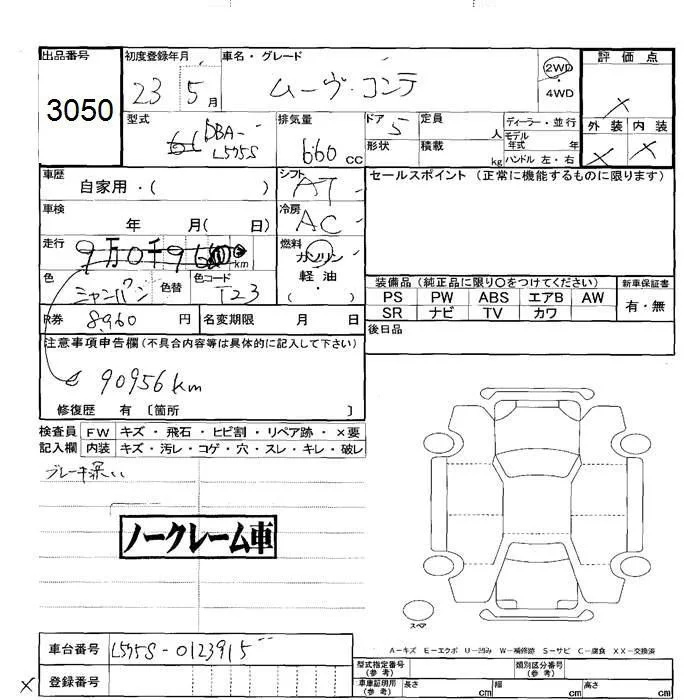 出品番号
3050
初度登録年月
23 5月
車名・グレード
ムーヴ・コンテ
2WD
・
4WD
評価点
×
外装 内装
× ×
型式
DBA-
L575S
排気量
660 cc
ドア 5
形状
定員 人
積載 kg
ディーラー・並行
モデル
年式 年
ハンドル 左・右
車歴
自家用・( )
シフト
AT
セールスポイント(正常に機能するものに限ります)
車検
年 月( 日)
冷房
AC
走行
9万0千96 km
燃料
ガソリン
軽油
( ・ )
色
シャンパン
色替
色コード
T23
R券 8960 円
名変期限 月 日
装備品(純正品に限り○をつけてください)
PS PW ABS エアB AW
SR ナビ TV カワ
新車保証書
有・無
後日品
注意事項申告欄(不具合内容等は具体的に記入して下さい)
90956km
修復歴 有 〔箇所 〕
検査員 FW キズ・飛石・ヒビ割・リペア跡・×要
記入欄 内装 キズ・汚レ・コゲ・穴・スレ・キレ・破レ
ノークレーム車
スペア
A-キズ E-エクボ U-凹み W-補修跡 S-サビ C-腐食 XX-交換済
車台番号 L575S-0123915
× 登録番号
型式指定番号
(参考)
類別区分番号
(参考)
車庫証明用
(参考)
長さ cm 幅 cm 高さ cm